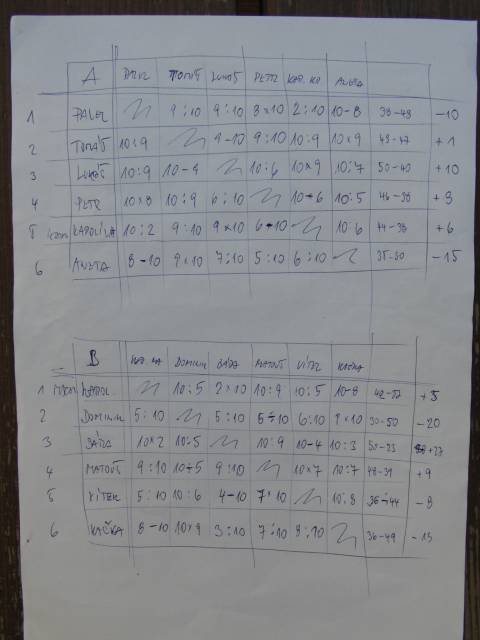 A PAVEL TOMÁŠ LUKÁŠ PETR KAR. KO ANETA
1 PAVEL 9:10 9:10 8x10 2:10 10-8 38-48 -10
2 TOMÁŠ 10:9 9-10 9:10 10:9 10x9 48-47 +1
3 LUKÁŠ 10:9 10-9 10:6 10x9 10:7 50-40 +10
4 PETR 10x8 10:9 6:10 10-6 10:5 46-38 +8
5 KAROLÍNA 10:2 9:10 9x10 6-10 10:6 44-38 +6
6 ANETA 8-10 9x10 7:10 5:10 6:10 35-50 -15
B DOMINIK BÁĎA MATOUŠ VÍTEK KAČKA
1 10:5 2x10 10:9 10:5 10-8 42-37 +5
2 DOMINIK 5:10 5:10 5÷10 6:10 9x10 30-50 -20
3 BÁĎA 10x2 10:5 10:9 10-4 10:3 50-23 +27
4 MATOUŠ 9:10 10÷5 9:10 10x7 10:7 48-39 +9
5 VÍTEK 5:10 10:6 4-10 7x10 10:8 36-44 -8
6 KAČKA 8-10 10x9 3:10 7:10 8:10 36-49 -13